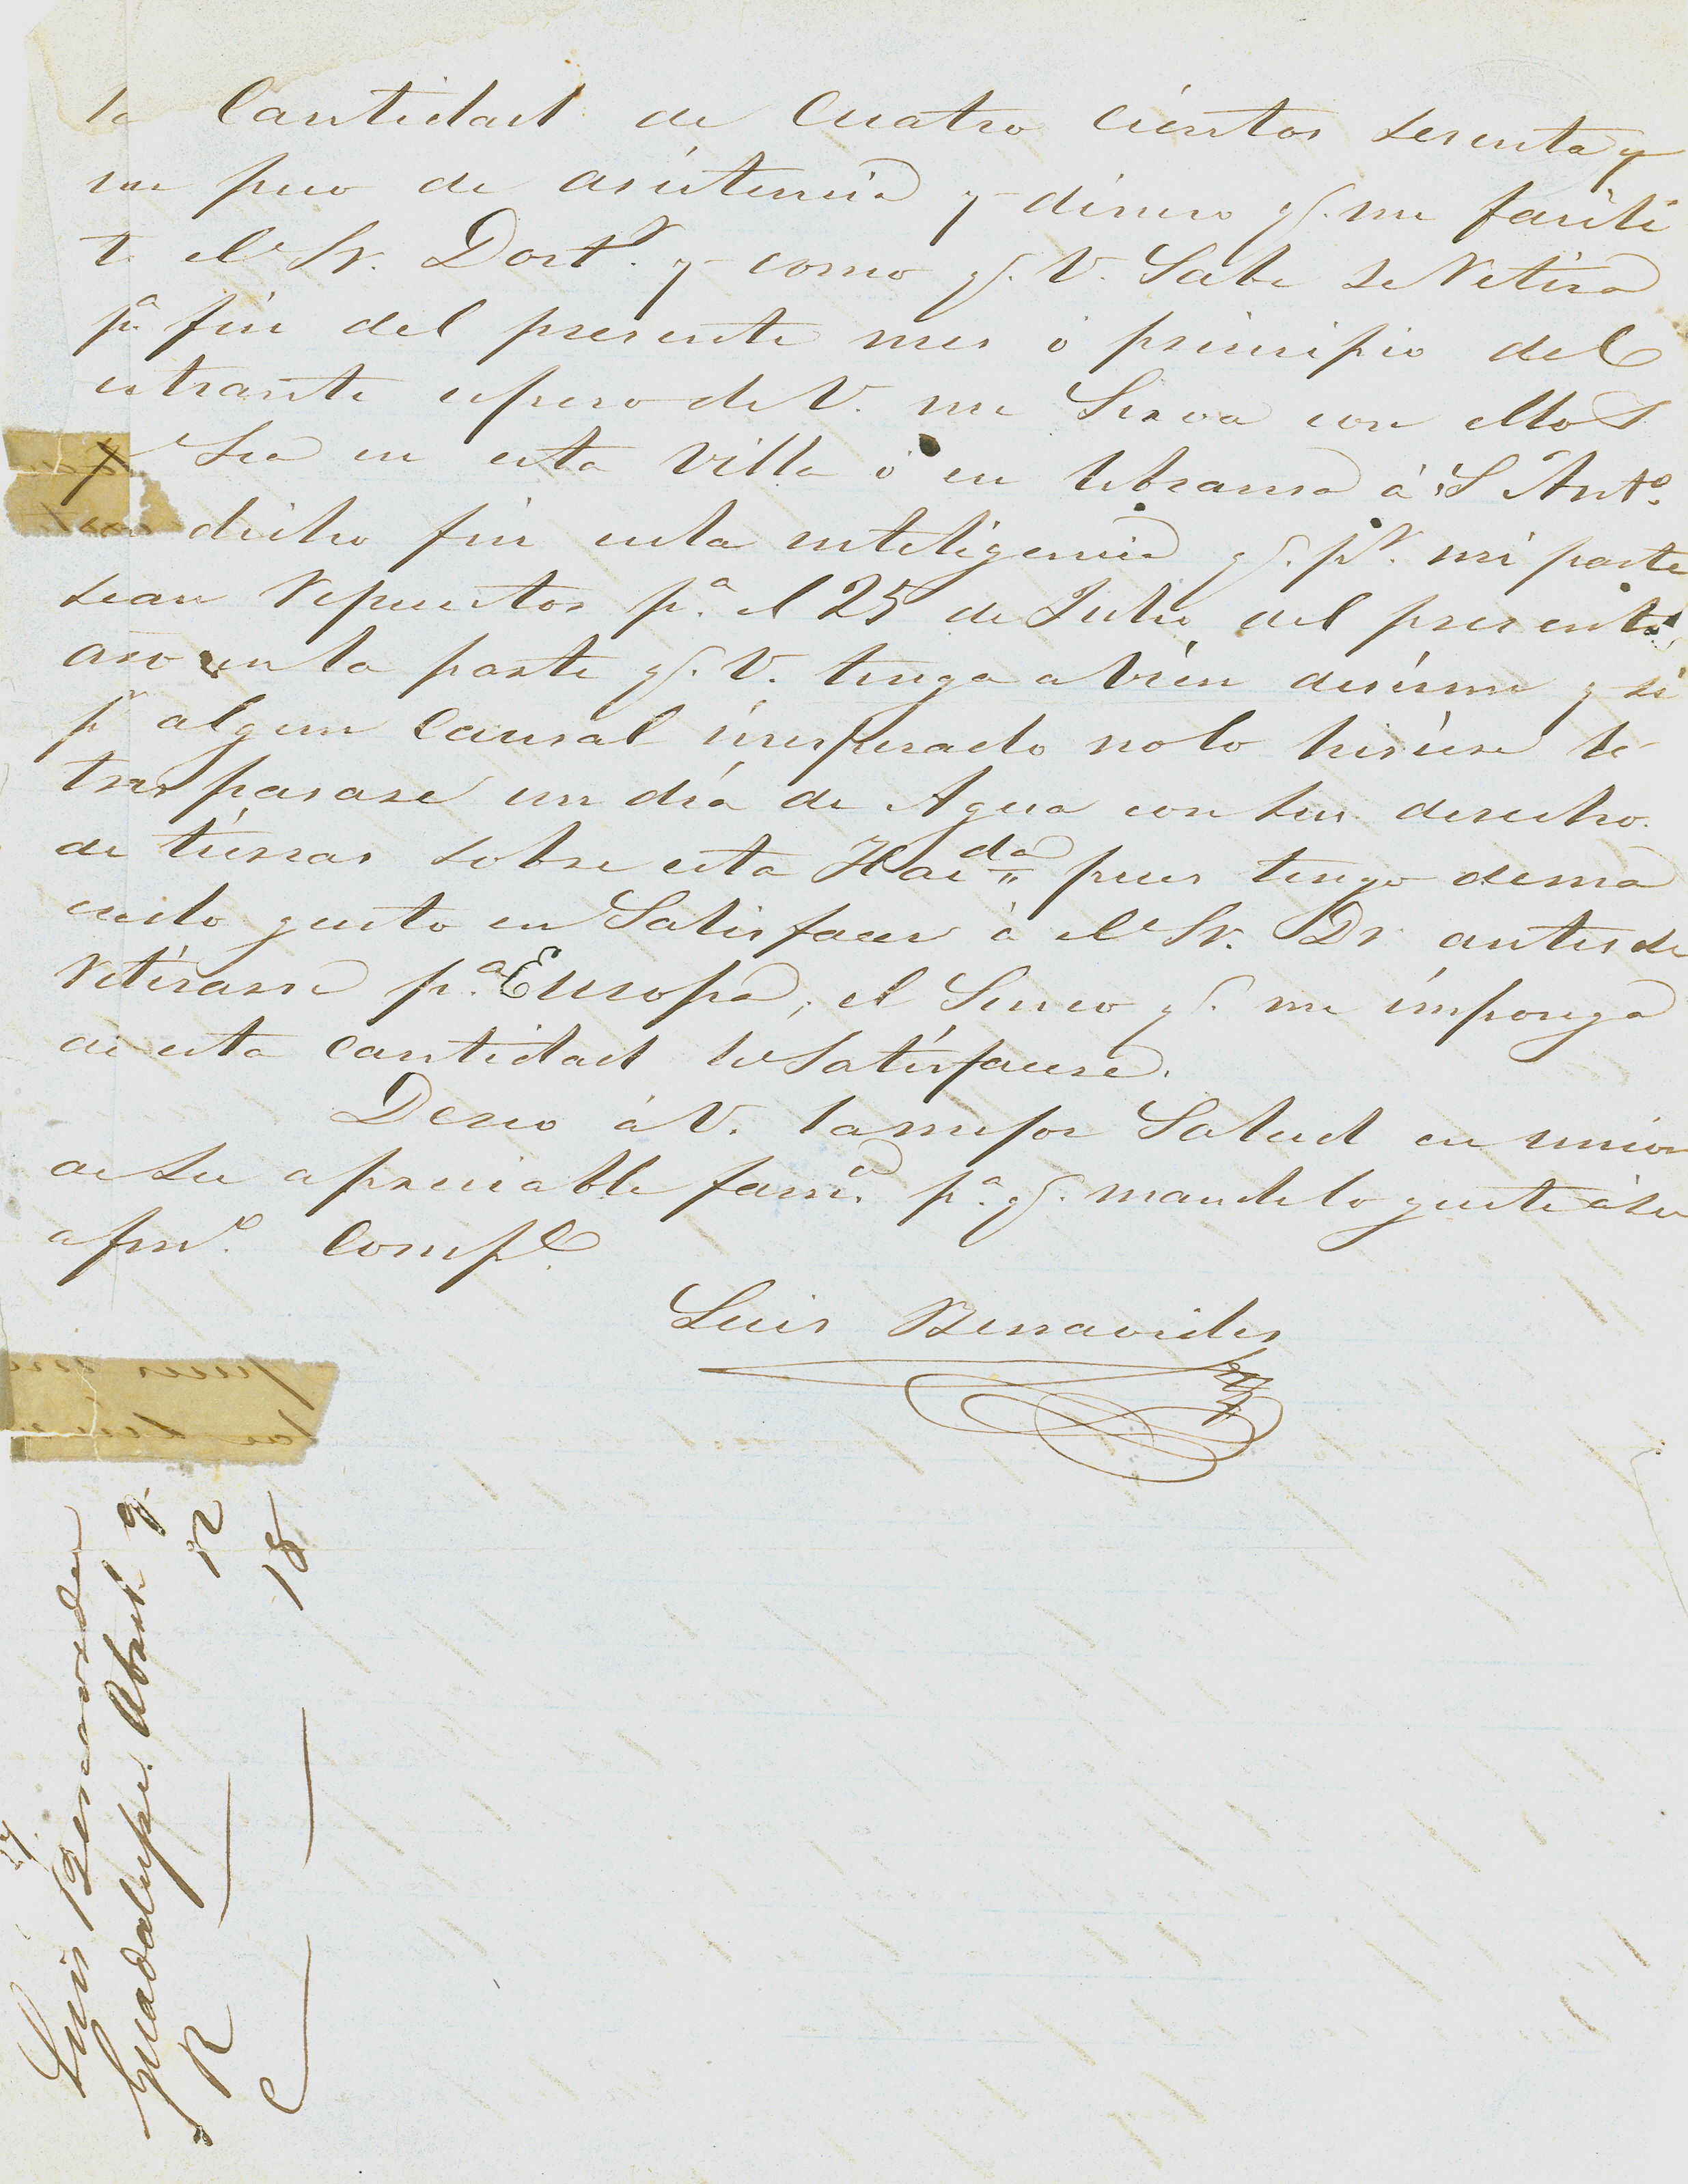 la Cantidad de Cuatro cientos sesenta y
un peso de asistencia y dinero q. me facili
to el Sr. Doct.r y como q. V. Sabe se retira
p.a fin del presente mes ó principio del
entrante espero de V. me Sirva con ellos
Sea en esta Villa ó en libransa á S Ant.o
dicho fin en la inteligencia q. p.r mi parte
sean repuestos p.a el 25 de Julio del presente
año en la parte q. V. tenga a bien desirme y si
p.r algun Causal inesperado no lo hisiese le
traspasase un dia de Agua con sus derecho
de tierras sobre esta Hacda pues tengo dema
ciado gusto en Satisfacer á el Sr. Dr antes de
retirarse p.a Europa, el Senco q. me imponga
de esta cantidad lo Satisfacere.
Deseo á V. la mejor Salud en union
de su apreciable fam.a p.a q. mande lo guste á su
afmo. Comp.e
Luis Benavides
Luis Benavides
Guadalupe. Abril 9
R 12
C 18